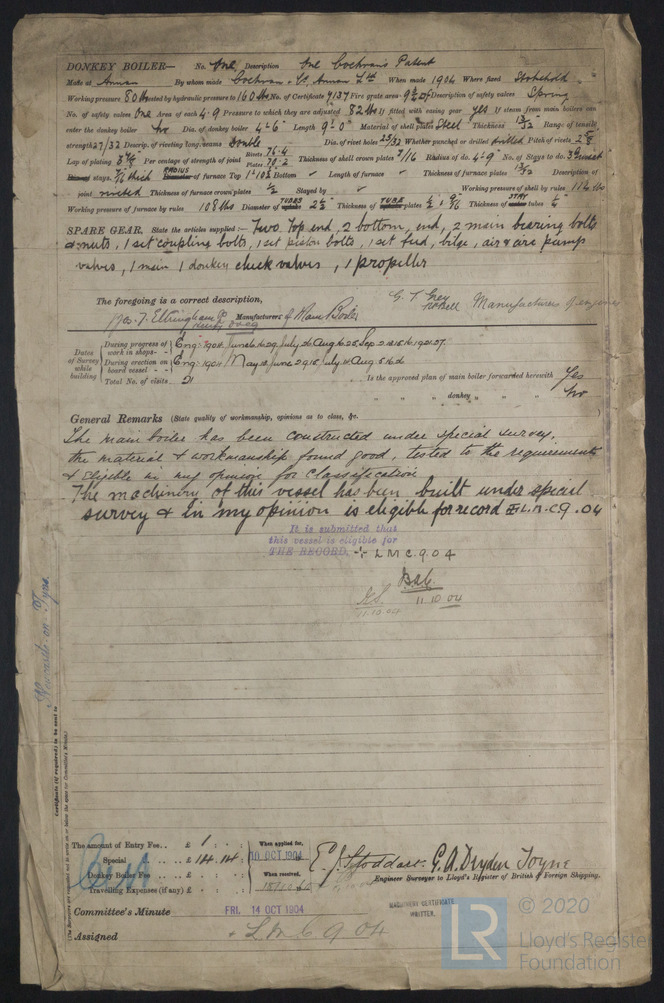 DONKEY BOILER— No. One Description One Cochran's Patent
Made at Annan By whom made Cochran & Co. Annan Ltd When made 1904 Where fixed Stokehold
Working pressure 80 lbs tested by hydraulic pressure to 160 lbs No. of Certificate 7137 Fire grate area Description of safety valves Spring
No. of safety valves One Area of each 4.9 Pressure to which they are adjusted 82 lbs If fitted with easing gear yes If steam from main boilers can
enter the donkey boiler no Dia. of donkey boiler 4'-6" Length 9'-0" Material of shell plates Steel Thickness 13/32 Range of tensile
strength 27/32 Descrip. of riveting long. seams Double Dia. of rivet holes 25/32 Whether punched or drilled drilled Pitch of rivets
Lap of plating Per centage of strength of joint Rivets 76.4 Plates 70.2 Thickness of shell crown plates 9/16 Radius of do. 4'-9" No. of Stays to do.
stays. 7/16 thick RADIUS of furnace Top Length of furnace Thickness of furnace plates 13/32 Description of
joint riveted Thickness of furnace crown plates 1/2 Stayed by Working pressure of shell by rules 112 lbs
Working pressure of furnace by rules 108 lbs Diameter of TUBES 2½ Thickness of TUBE plates Thickness of STAY tubes ¼
SPARE GEAR. State the articles supplied:— Two top end, 2 bottom end, 2 main bearing bolts
& nuts, 1 set coupling bolts, 1 set piston bolts, 1 set feed, bilge, air & circ pump
valves, 1 main 1 donkey check valves, 1 propeller
The foregoing is a correct description, G. T. Grey Manufacturers of engines
Jos. T. Eltringham & Co Manufacturers of Main Boiler
Dates of Survey while building
During progress of work in shops - - Eng: 1904
During erection on board vessel - - Eng: 1904 May 18 June 29
Total No. of visits 21 Is the approved plan of main boiler forwarded herewith Yes
" " " donkey " " " no
General Remarks (State quality of workmanship, opinions as to class, &c.
The main boiler has been constructed under special survey,
the material & workmanship found good, tested to the requirements
& eligible in my opinion for classification
The machinery of this vessel has been built under special
survey & in my opinion is eligible for record L.M.C 9.04
It is submitted that
this vessel is eligible for
THE RECORD. L M C. 9. 04
11.10.04
11.10.04
Newcastle-on-Tyne
Certificate (if required) to be sent to
The amount of Entry Fee.. £ 1 : : When applied for,
Special .. .. £ 14.14 : 10 OCT 1904
Donkey Boiler Fee .. .. £ : : When received,
Travelling Expenses (if any) £ : :
E. J. Stoddart. G. A. Dryden Toyne
Engineer Surveyor to Lloyd's Register of British & Foreign Shipping.
Committee's Minute FRI. 14 OCT 1904
MACHINERY CERTIFICATE
WRITTEN.
Assigned + L M C 9 04
LR © 2020
Lloyd's Register
Foundation